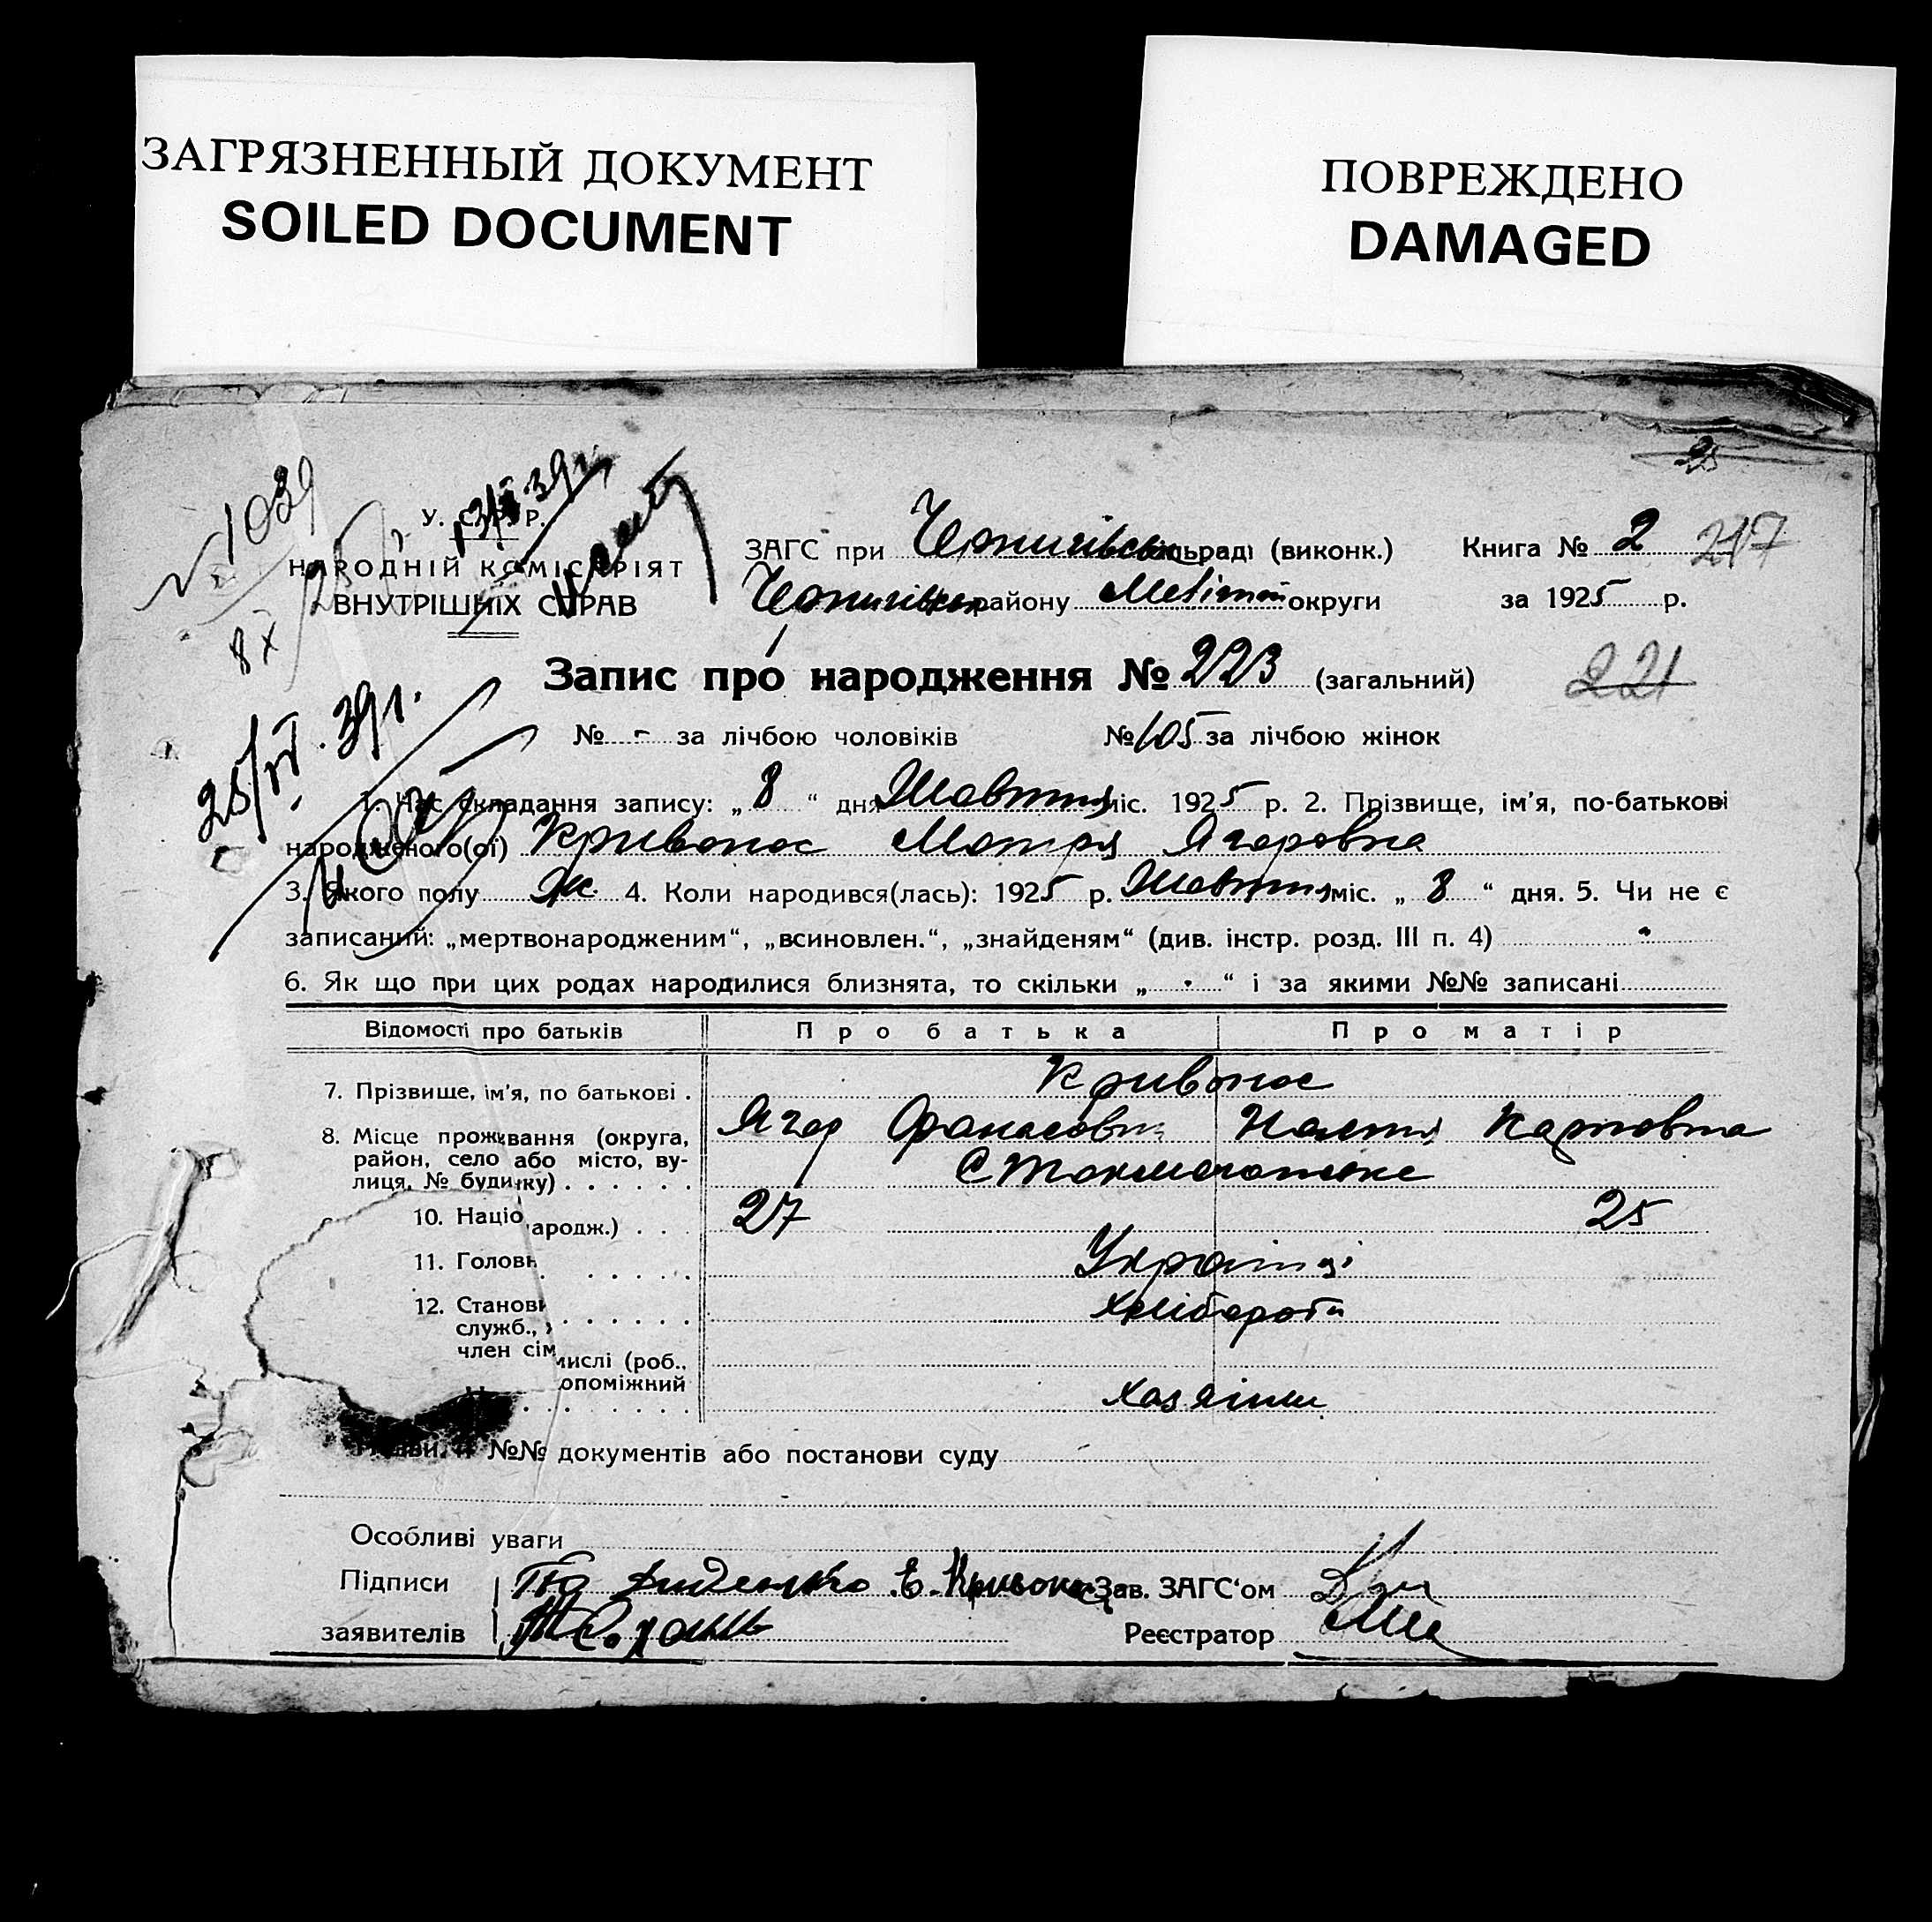 ЗАГРЯЗНЕННЫЙ ДОКУМЕНТ
SOILED DOCUMENT
ПОВРЕЖДЕНО
DAMAGED
№ 1039
У. С. Р. Р.
НАРОДНІЙ КОМІСАРІЯТ
ВНУТРІШНІХ СПРАВ
8/X
25/IV. 39 г.
ЗАГС при Чернигівськ сільраді (виконк.) Книга № 2 217
Чернигівськ району Меліт округи за 1925 р.
Запис про народження № 223 (загальний) 221
№ - за лічбою чоловіків № 105 за лічбою жінок
1. Час складання запису: „ 8 “ дня Жовтня міс. 1925 р. 2. Прізвище, ім'я, по-батькові
народженого(ої) Кривонос Мотря Ягоровна
3. Якого полу ж. 4. Коли народився(лась): 1925 р. Жовтня міс. „ 8 “ дня. 5. Чи не є
записаний: „мертвонародженим“, „всиновлен.“, „знайденям“ (див. інстр. розд. III п. 4)
6. Як що при цих родах народилися близнята, то скільки „ “ і за якими №№ записані
Відомості про батьків Про батька Про матір
7. Прізвище, ім'я, по батькові . Кривонос
Ягор Фанасович Настя Карповна
8. Місце проживання (округа,
район, село або місто, ву-
лиця, № будинку) . . . . . . С Токмачанське
10. Націо
ародж.) . . . 27 25
11. Головн
. . . . . . Українці
12. Станови
служб., . . . . . . Хлібороби
член сім
числі (роб.,
опоміжний
. . . . . . . хазяіни
№№ документів або постанови суду
Особливі уваги
Підписи Диденко Е. Кривонос Зав. ЗАГС‘ом
заявителів Реєстратор